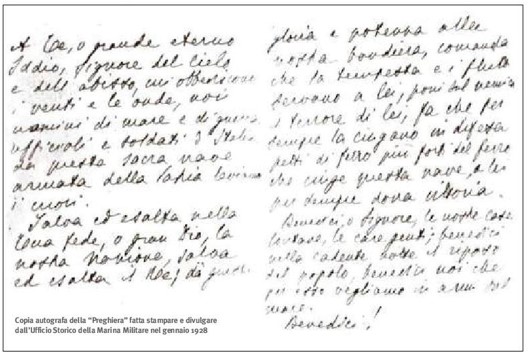 A Te, o grande eterno
Iddio, Signore del cielo
e dell'abisso, cui obbediscono
i venti e le onde, noi
uomini di mare e di guerra
ufficiali e soldati d'Italia
da questa sacra nave
armata della Patria leviamo
i cuori.
Salva ed esalta nella
Tua fede, o gran Dio, la
nostra Nazione, salva
ed esalta il Re; dà
gloria e potenza alla
nostra bandiera, comanda
che la tempesta e i flutti
servano a lei, poni sul nemico
il terrore di lei, fa che per
sempre la cingano in difesa
petti di ferro più forti del ferro
che cinge questa nave, a lei
per sempre dona vittoria.
Benedici o Signore, le nostre case
lontane, le care genti; benedici
nella cadente notte il riposo
del popolo, benedici noi che
per esso vegliamo in armi sul
mare.
Benedici!
Copia autografa della "Preghiera" fatta stampare e divulgare
dall'Ufficio Storico della Marina Militare nel gennaio 1928